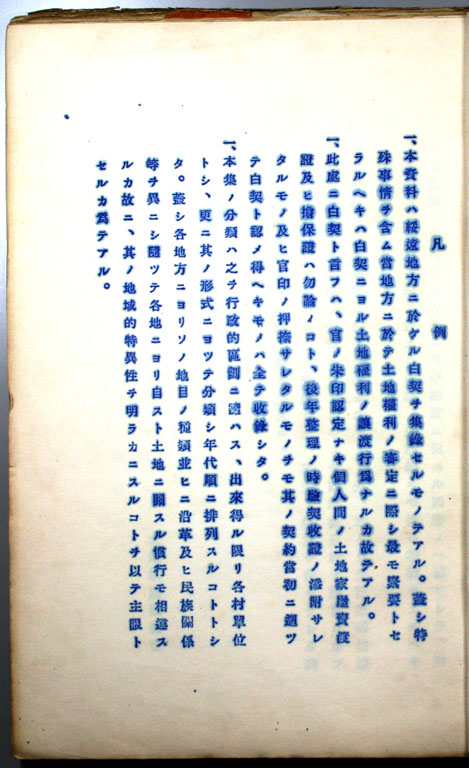 凡例
一、本資料ハ綏遠地方ニ於ケル白契ヲ集錄セルモノデアル。蓋シ特
殊事情ヲ含ム當地方ニ於テ土地權利ノ審定ニ際シ最モ緊要トセ
ラルヘキハ白契ニヨル土地權利ノ讓渡行爲ナルカ故テアル。
一、此處ニ白契ト言フハ、官ノ朱印認定ナキ個人間ノ土地家屋賣渡
證及ヒ擔保證ハ勿論ノコト、後年整理ノ時驗契收證ノ添附サレ
タルモノ及ヒ官印ノ押捺サレタルモノヲモ其ノ契約當初ニ遡ツ
テ白契ト認メ得ヘキモノハ全テ收錄シタ。
一、本集ノ分類ハ之ヲ行政的區劃ニ據ハス、出來得ル限リ各村單位
トシ、更ニ其ノ形式ニヨツテ分類シ年代順ニ排列スルコトトシ
タ。蓋シ各地方ニヨリソノ地目ノ種類並ヒニ沿革及ヒ民族關係
等ヲ異ニシ隨ツテ各地ニヨリ自スト土地ニ關スル慣行モ相違ス
ルカ故ニ、其ノ地域的特異性ヲ明ラカニスルコトヲ以テ主眼ト
セルカ爲テアル。